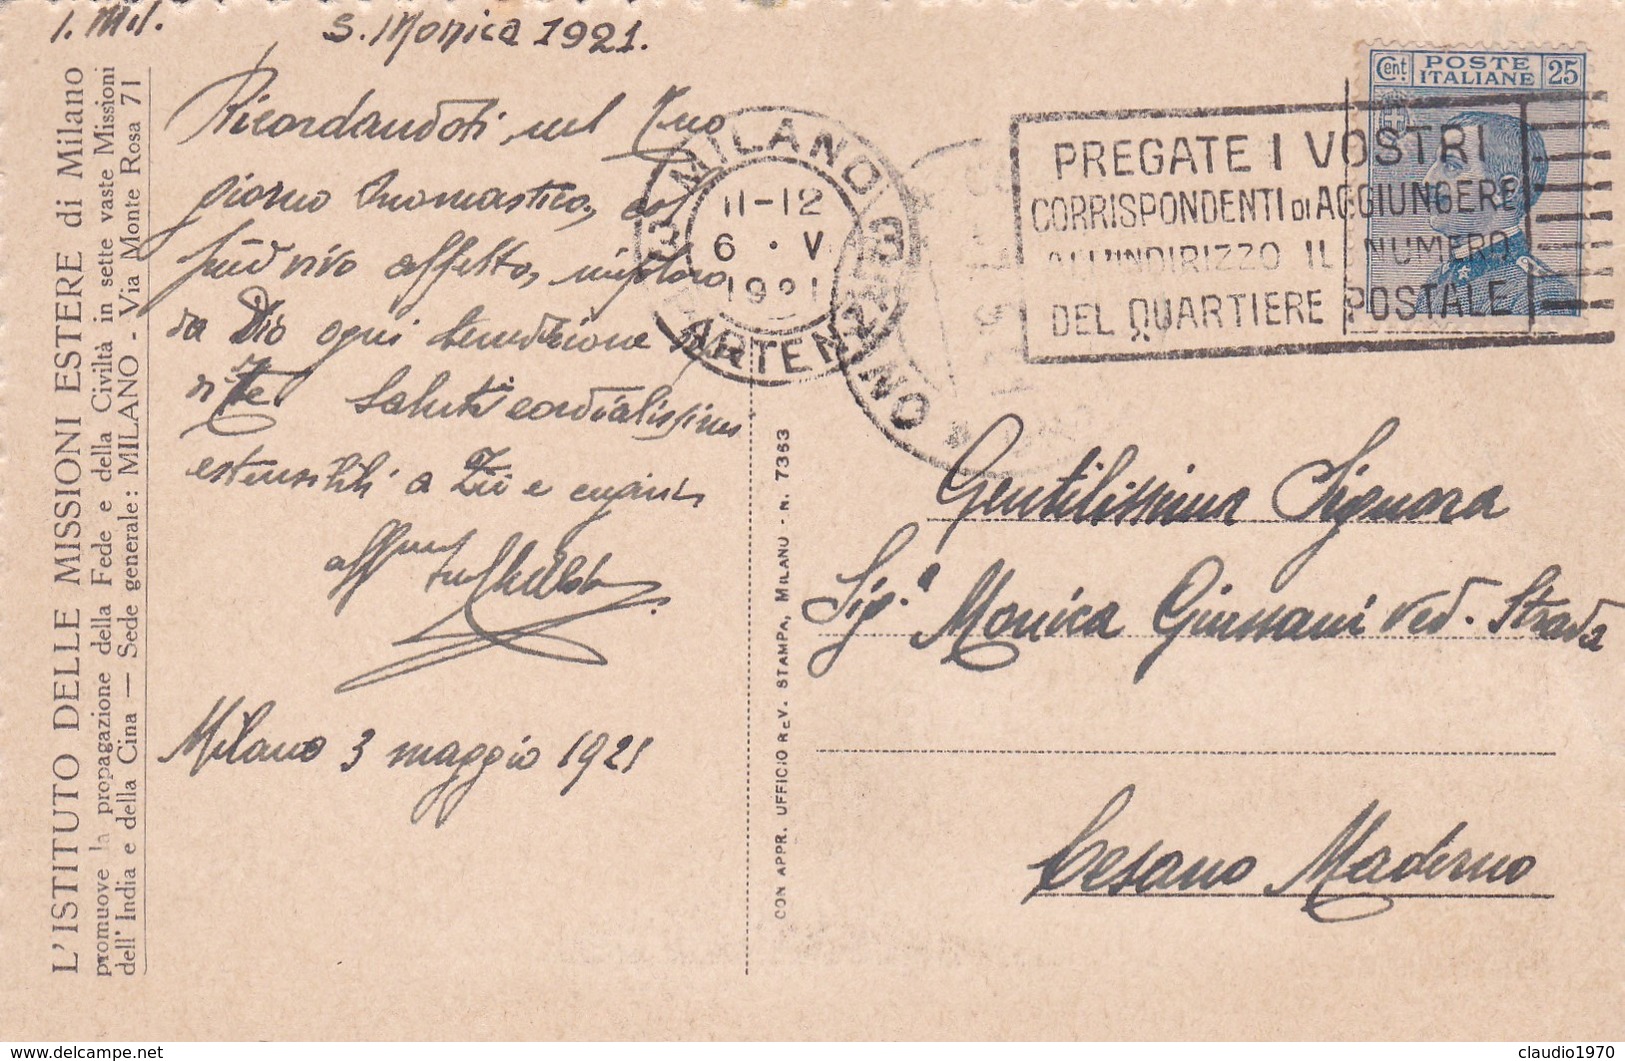 S. Monica 1921.
Ricordandoti nel Tuo
giorno onomastico, col
più vivo affetto, imploro
da Dio ogni benedizione
Te. Saluti cordialissimi
estensibili a Zii e cugini
Milano 3 maggio 1921
L'ISTITUTO DELLE MISSIONI ESTERE di Milano
promuove la propagazione della Fede e della Civiltà in sette vaste Missioni
dell'India e della Cina — Sede generale: MILANO - Via Monte Rosa 71
CON APPR. UFFICIO REV. STAMPA, MILANO - N. 7363
MILANO
3 3
11-12
6 · V
1921
PARTENZA
MILANO
PREGATE I VOSTRI
CORRISPONDENTI DI AGGIUNGERE
ALL'INDIRIZZO IL NUMERO
DEL QUARTIERE POSTALE
Cent. POSTE ITALIANE 25
Gentilissima Signora
Sig.a Monica Giussani ved. Strada
Cesano Maderno
delcampe.net
claudio1970